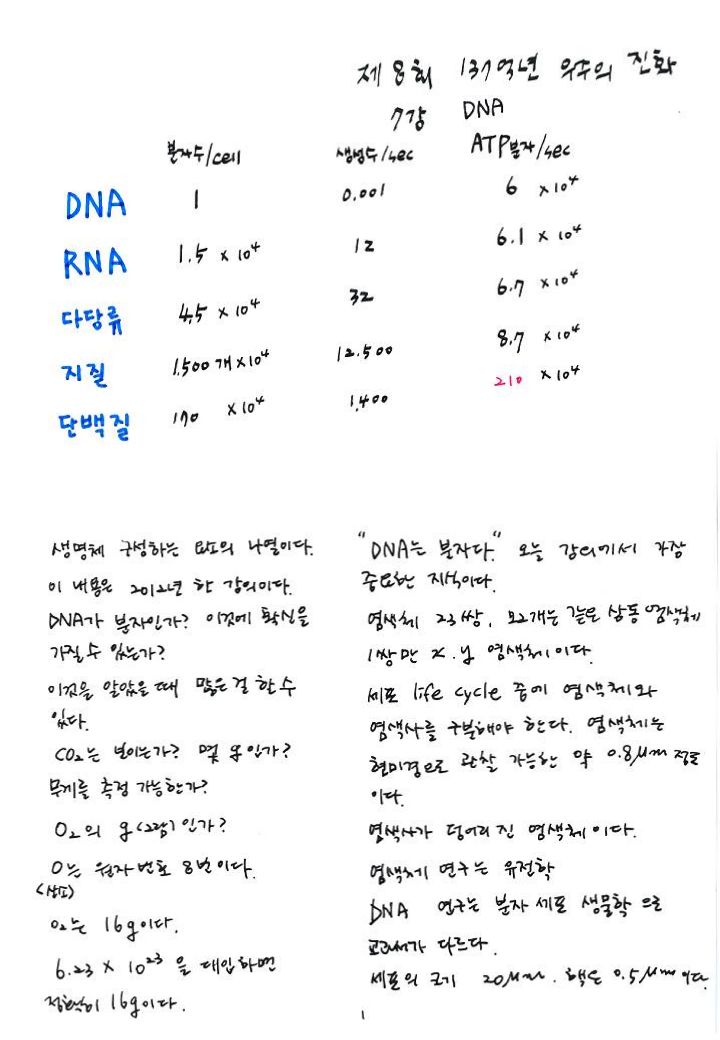 제 8회 137억년 우주의 진화
7강 DNA
분자수/cell 생성수/sec ATP분자/sec
DNA 1 0.001 6 × 10⁴
RNA 1.5 × 10⁴ 12 6.1 × 10⁴
다당류 4.5 × 10⁴ 32 6.7 × 10⁴
지질 1,500개×10⁴ 12.500 8.7 × 10⁴
단백질 170 × 10⁴ 1,400 210 × 10⁴
생명체 구성하는 요소의 나열이다.
이 내용은 2012년 한 강의이다.
DNA가 분자인가? 이것에 확신을
가질 수 있는가?
이것을 알았을 때 많은 걸 할 수
있다.
CO₂는 보이는가? 몇 g인가?
무게를 측정 가능한가?
O₂의 g(그람)인가?
O는 원자 번호 8번이다.
<산소>
O₂는 16g이다.
6.23 × 10²³ 을 대입하면
정확히 16g이다.
"DNA는 분자다." 오늘 강의에서 가장
중요한 지식이다.
염색체 23쌍, 22개는 같은 상동 염색체
1쌍만 x.y 염색체이다.
세포 life cycle 중에 염색체와
염색사를 구분해야 한다. 염색체는
현미경으로 관찰 가능한 약 0.8μm 정도
이다.
염색사가 덩어리진 염색체이다.
염색체 연구는 유전학
DNA 연구는 분자 세포 생물학으로
교과서가 다르다.
세포의 크기 20μm. 핵은 0.5μm이다.
1